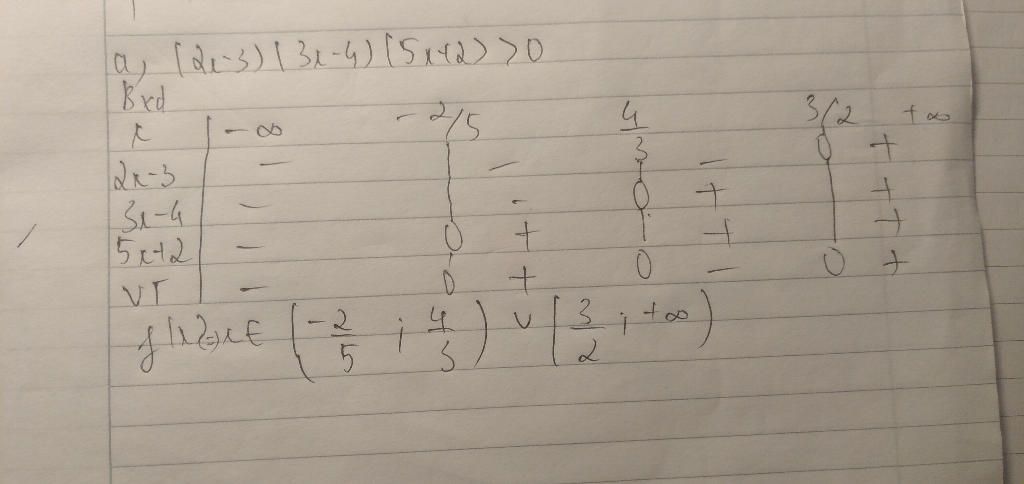 a, (2x-3)(3x-4)(5x+2) > 0
Bxd
x | -∞ -2/5 4/3 3/2 +∞
2x-3 | - | - | - 0 +
3x-4 | - | - 0 + | +
5x+2 | - 0 + | + | +
VT | - 0 + 0 - 0 +
x∈ (-2/5 ; 4/3) ∪ (3/2 ; +∞)